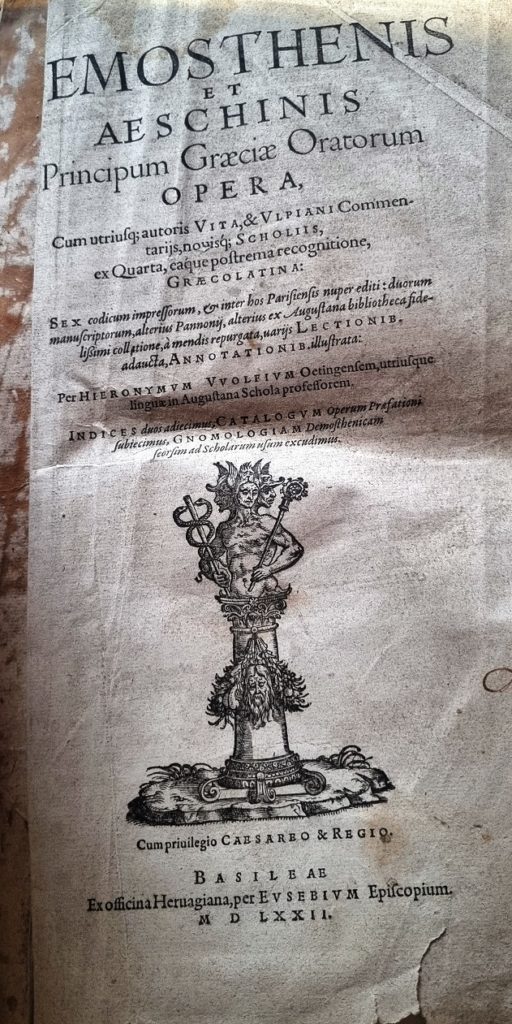 EMOSTHENIS
ET
AESCHINIS
Principum Græciæ Oratorum
OPERA,
Cum utriusq; autoris VITA, & VLPIANI Commen-
tarijs, nouisq; SCHOLIIS,
ex Quarta, eaque postrema recognitione,
GRÆCOLATINA:
SEX codicum impressorum, & inter hos Parisiensis nuper editi: duorum
manuscriptorum, alterius Pannonij, alterius ex Augustana bibliotheca fide-
lissimi collatione, à mendis repurgata, uarijs LECTIONIB.
adaucta, ANNOTATIONIB. illustrata:
Per HIERONYMVM VVOLFIVM Oetingensem, utriusque
linguæ in Augustana Schola professorem.
INDICES duos adiecimus, CATALOGVM Operum Præfationi
subiecimus, GNOMOLOGIAM Demosthenicam
seorsim ad Scholarum usum excudimus.
Cum priuilegio CAESAREO & REGIO.
BASILEAE
Ex officina Heruagiana, per EVSEBIVM Episcopium.
M D LXXII.